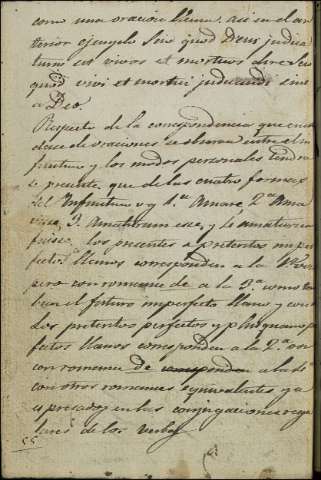 como una oracion llana, asi en el an
terior ejemplo Sino quod Deus judica
turus est vivos et mortuos dirè Scio
quod vivi et mortui judicandi sint
a Deo.
Respecto de la correspondencia que en
clace de oraciones se observa entre el in
finitivo y los modos personales tendra
se presente, que de las cuatro formas
del Infinitivo v g 1.ª Amare, 2.ª Ama
visse, 3. Amaturum esse, y 4.ª amaturum
fuisse, los presentes y preteritos imper
fectos llanos corresponden a la 1.ª
pero con romance de a la 3.ª como tam
bien el futuro imperfecto llano y con
los preteritos perfectos y plusquamper
fectos llanos corresponden a la 2.ª
con romance de corresponden a la 4.ª
con otros romances equivalentes ya
espresados en las conjugaciones regu
lares de los verbos
55